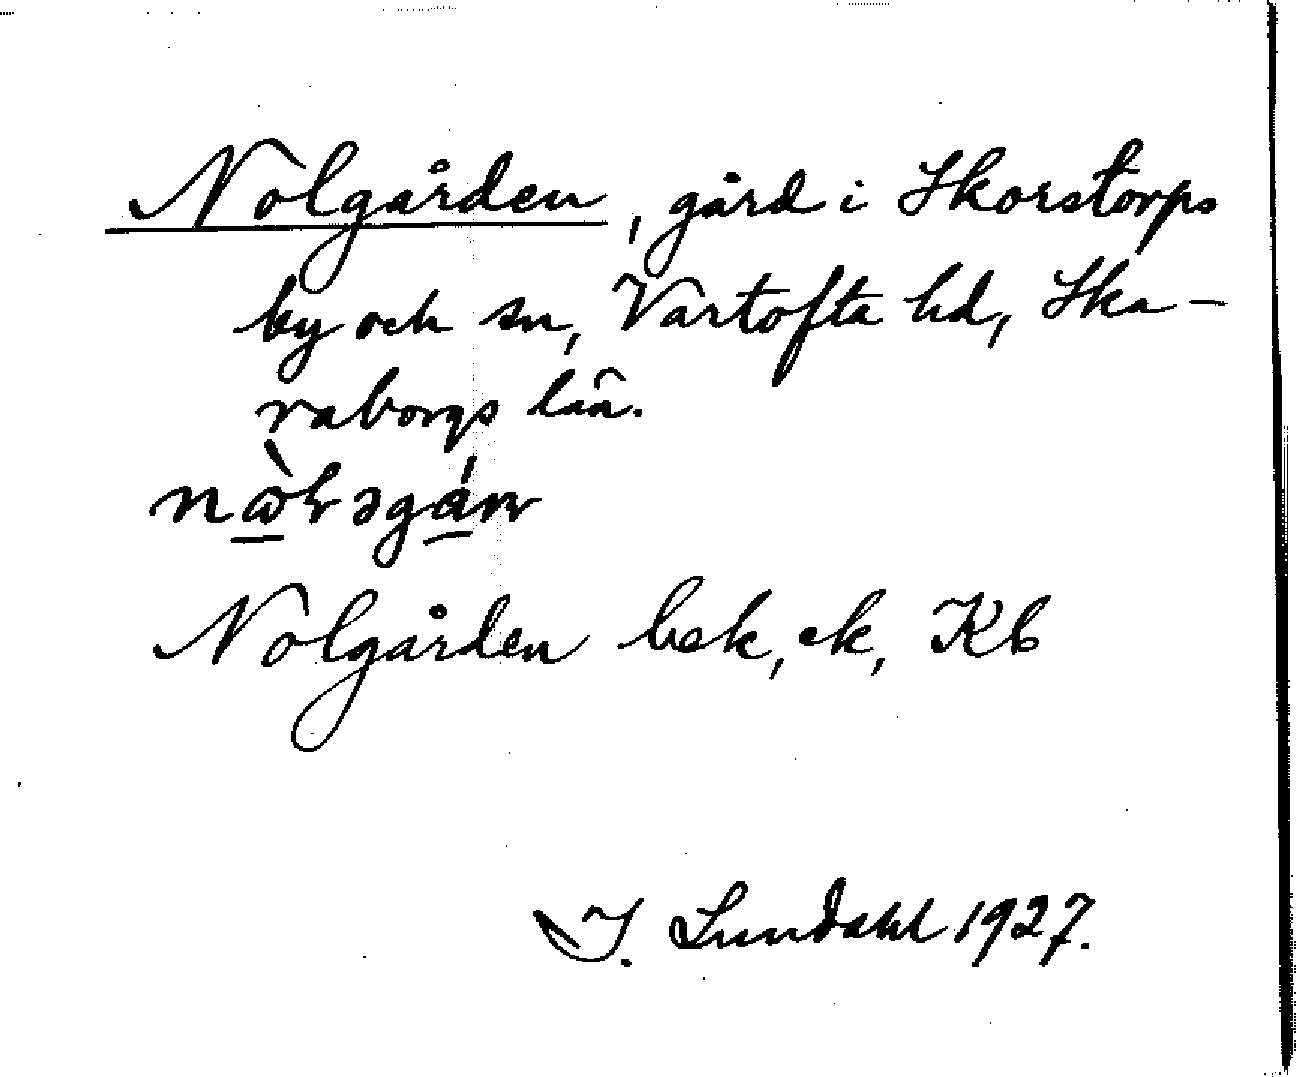 Nolgården, gård i Skorstorps
by och sn, Vartofta hd, Ska-
raborgs län.
Nolgården bek, ek, Kb
I. Lundahl 1927.